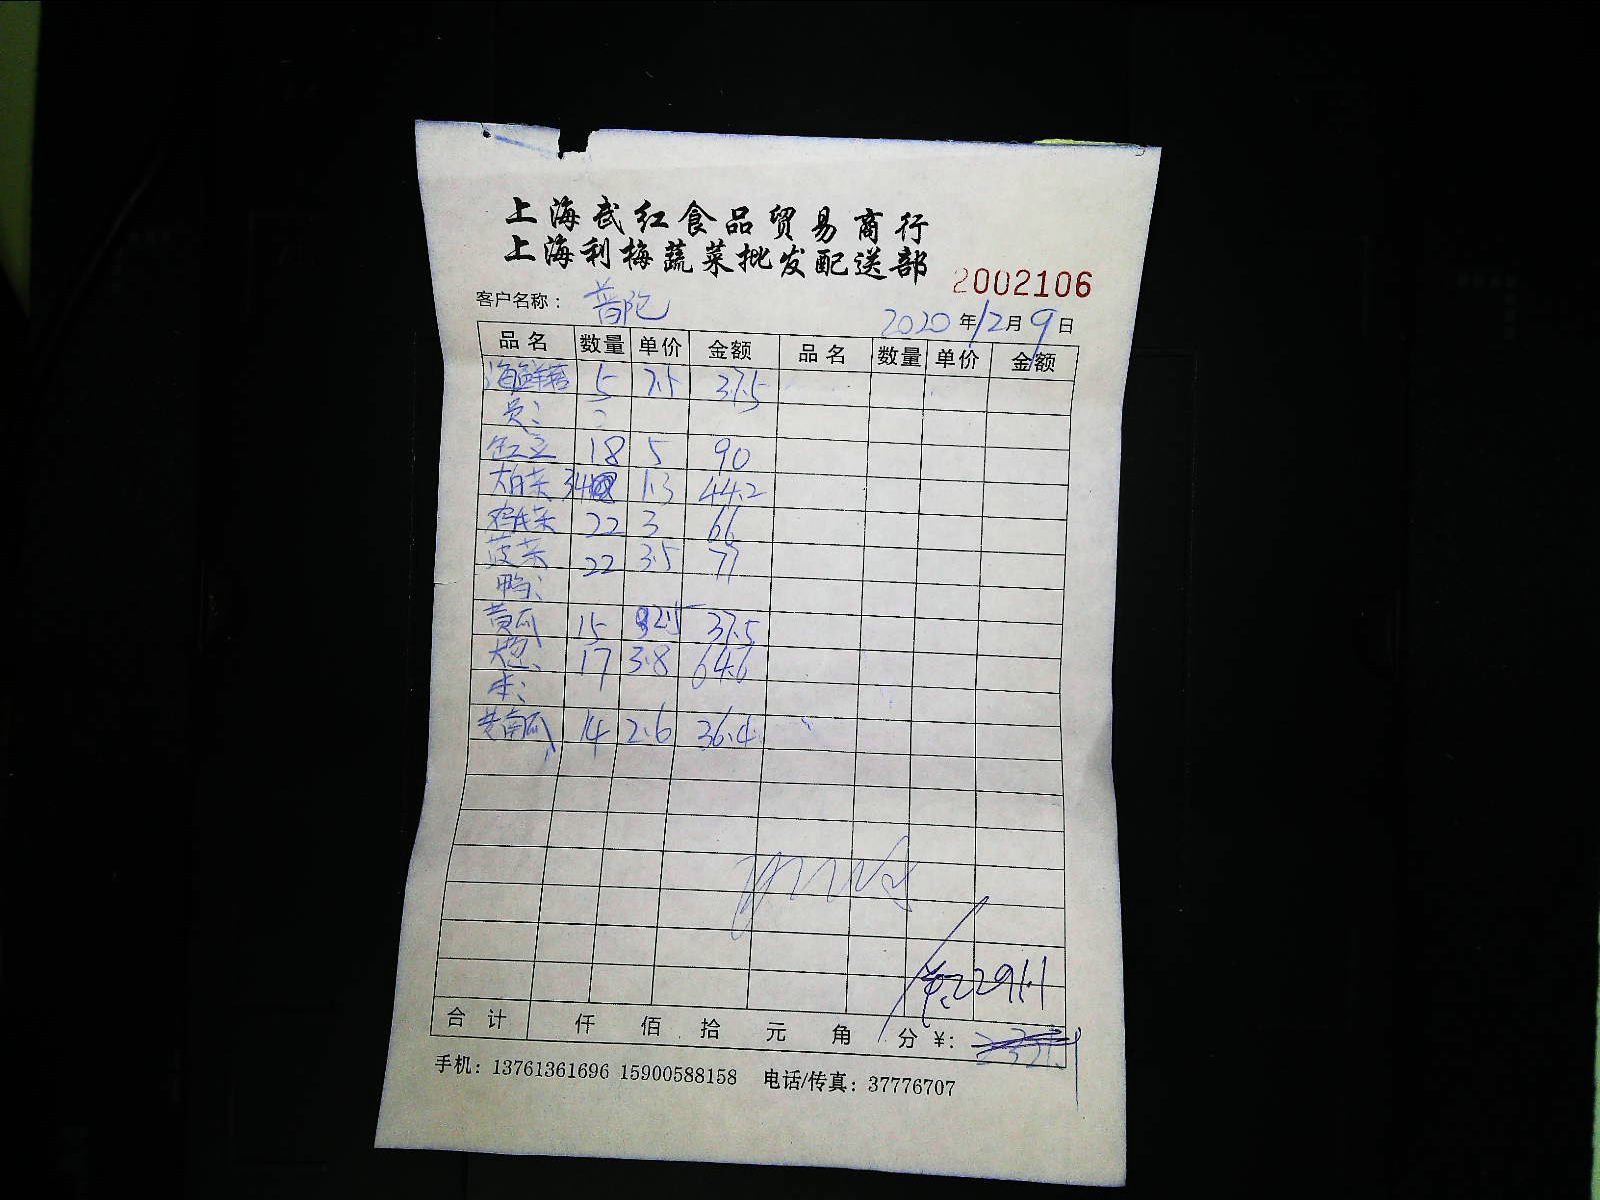 上海武红食品贸易商行
上海利梅蔬菜批发配送部
2002106
客户名称： 普陀
2020年12月9日
品名 数量 单价 金额 品名 数量 单价 金额
海鲜菇 5 7.5 37.5
18 5 90
大白菜 34 1.3 44.2
鸡毛菜 22 3 66
菠菜 22 3.5 77
鸭：
黄瓜 15 2.5 37.5
大葱 17 3.8 64.6
本：
老南瓜 14 2.6 36.4
2291.1
合计 仟 佰 拾 元 角 分 ¥：
手机：13761361696 15900588158 电话/传真：37776707